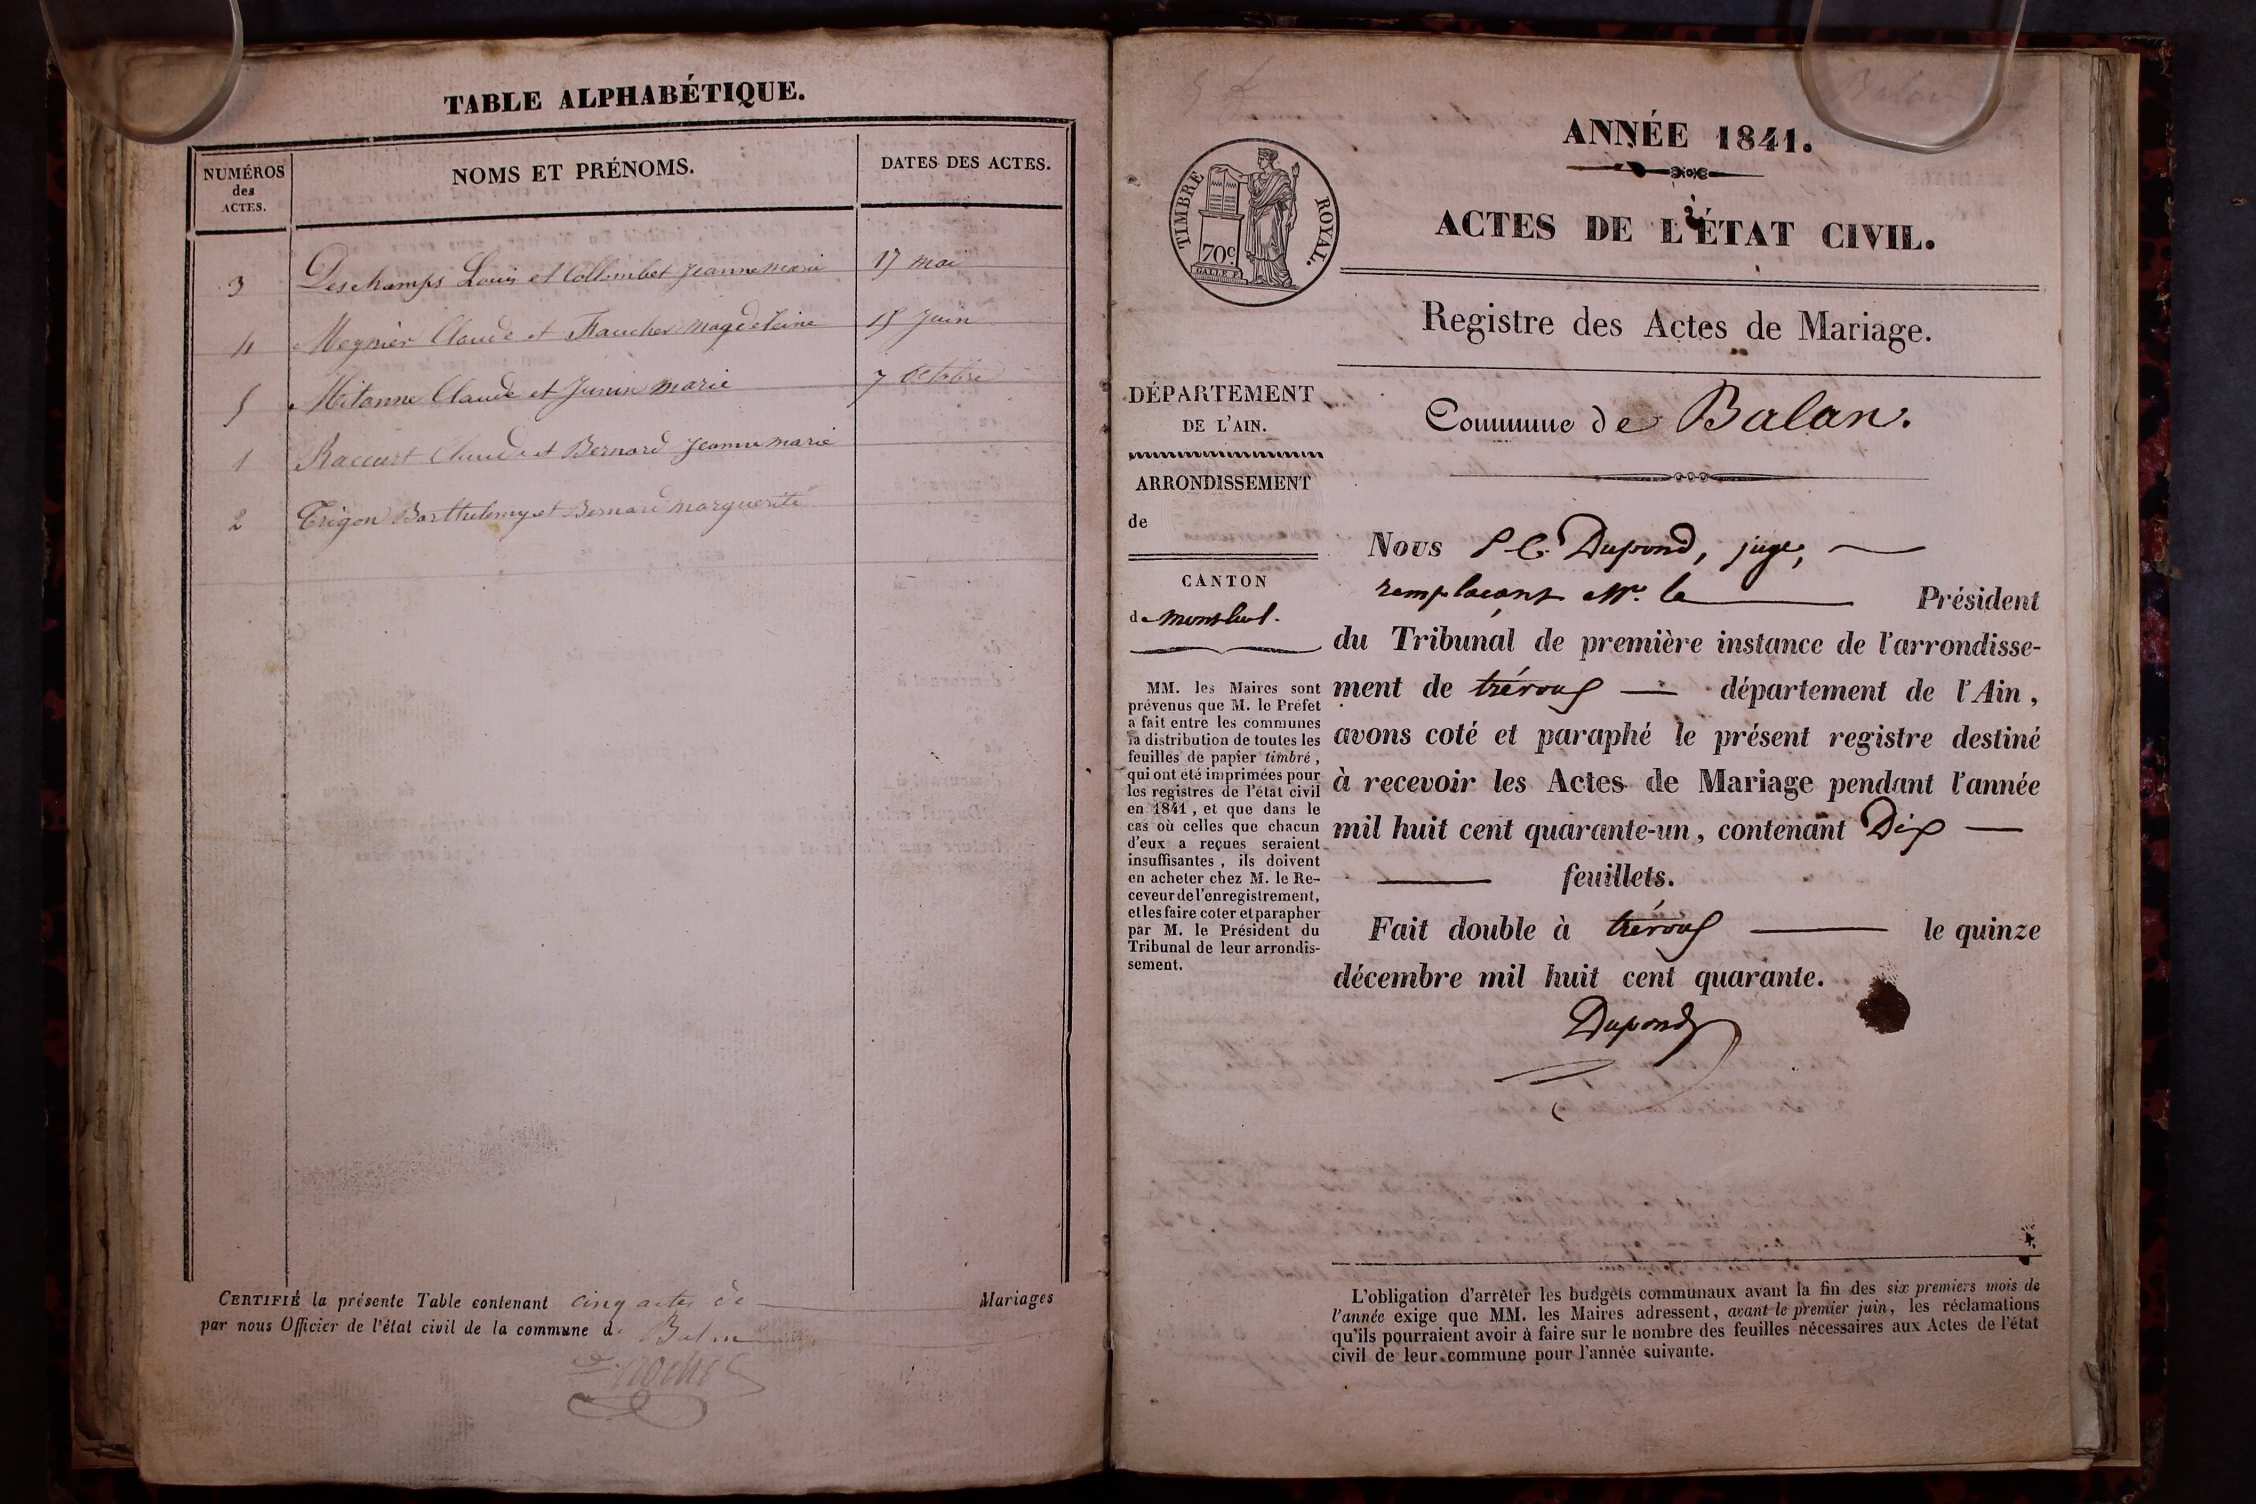 TABLE ALPHABÉTIQUE.
NUMÉROS
des
ACTES.
NOMS ET PRÉNOMS.
DATES DES ACTES.
3 Deschamps Louis et Collombet Jeanne marie 17 mai
4 Meynier Claude et Faucher magdeleine 15 Juin
5 Mitanne Claude et Junin marie 7 Octobre
1 Raccurt Claude et Bernard Jeanne marie
2 Trigon Barthelemy et Bernard marguerite
CERTIFIÉ la présente Table contenant cinq actes de Mariages
par nous Officier de l'état civil de la commune d Balan
Balan
TIMBRE ROYAL.
70c.
GALLE F.
ANNÉE 1841.
ACTES DE L'ÉTAT CIVIL.
Registre des Actes de Mariage.
DÉPARTEMENT
DE L'AIN.
ARRONDISSEMENT
de
CANTON
de Montluel.
MM. les Maires sont
prévenus que M. le Préfet
a fait entre les communes
la distribution de toutes les
feuilles de papier timbré,
qui ont été imprimées pour
les registres de l'état civil
en 1841, et que dans le
cas où celles que chacun
d'eux a reçues seraient
insuffisantes, ils doivent
en acheter chez M. le Re-
ceveur de l'enregistrement,
et les faire coter et parapher
par M. le Président du
Tribunal de leur arrondis-
sement.
Commune de Balan.
Nous P C. Dupond, juge,
remplaçant Mr. le Président
du Tribunal de première instance de l'arrondisse-
ment de trévoux département de l'Ain,
avons coté et paraphé le présent registre destiné
à recevoir les Actes de Mariage pendant l'année
mil huit cent quarante-un, contenant Dix
feuillets.
Fait double à trévoux le quinze
décembre mil huit cent quarante.
Dupond
L'obligation d'arrêter les budgets communaux avant la fin des six premiers mois de
l'année exige que MM. les Maires adressent, avant le premier juin, les réclamations
qu'ils pourraient avoir à faire sur le nombre des feuilles nécessaires aux Actes de l'état
civil de leur commune pour l'année suivante.